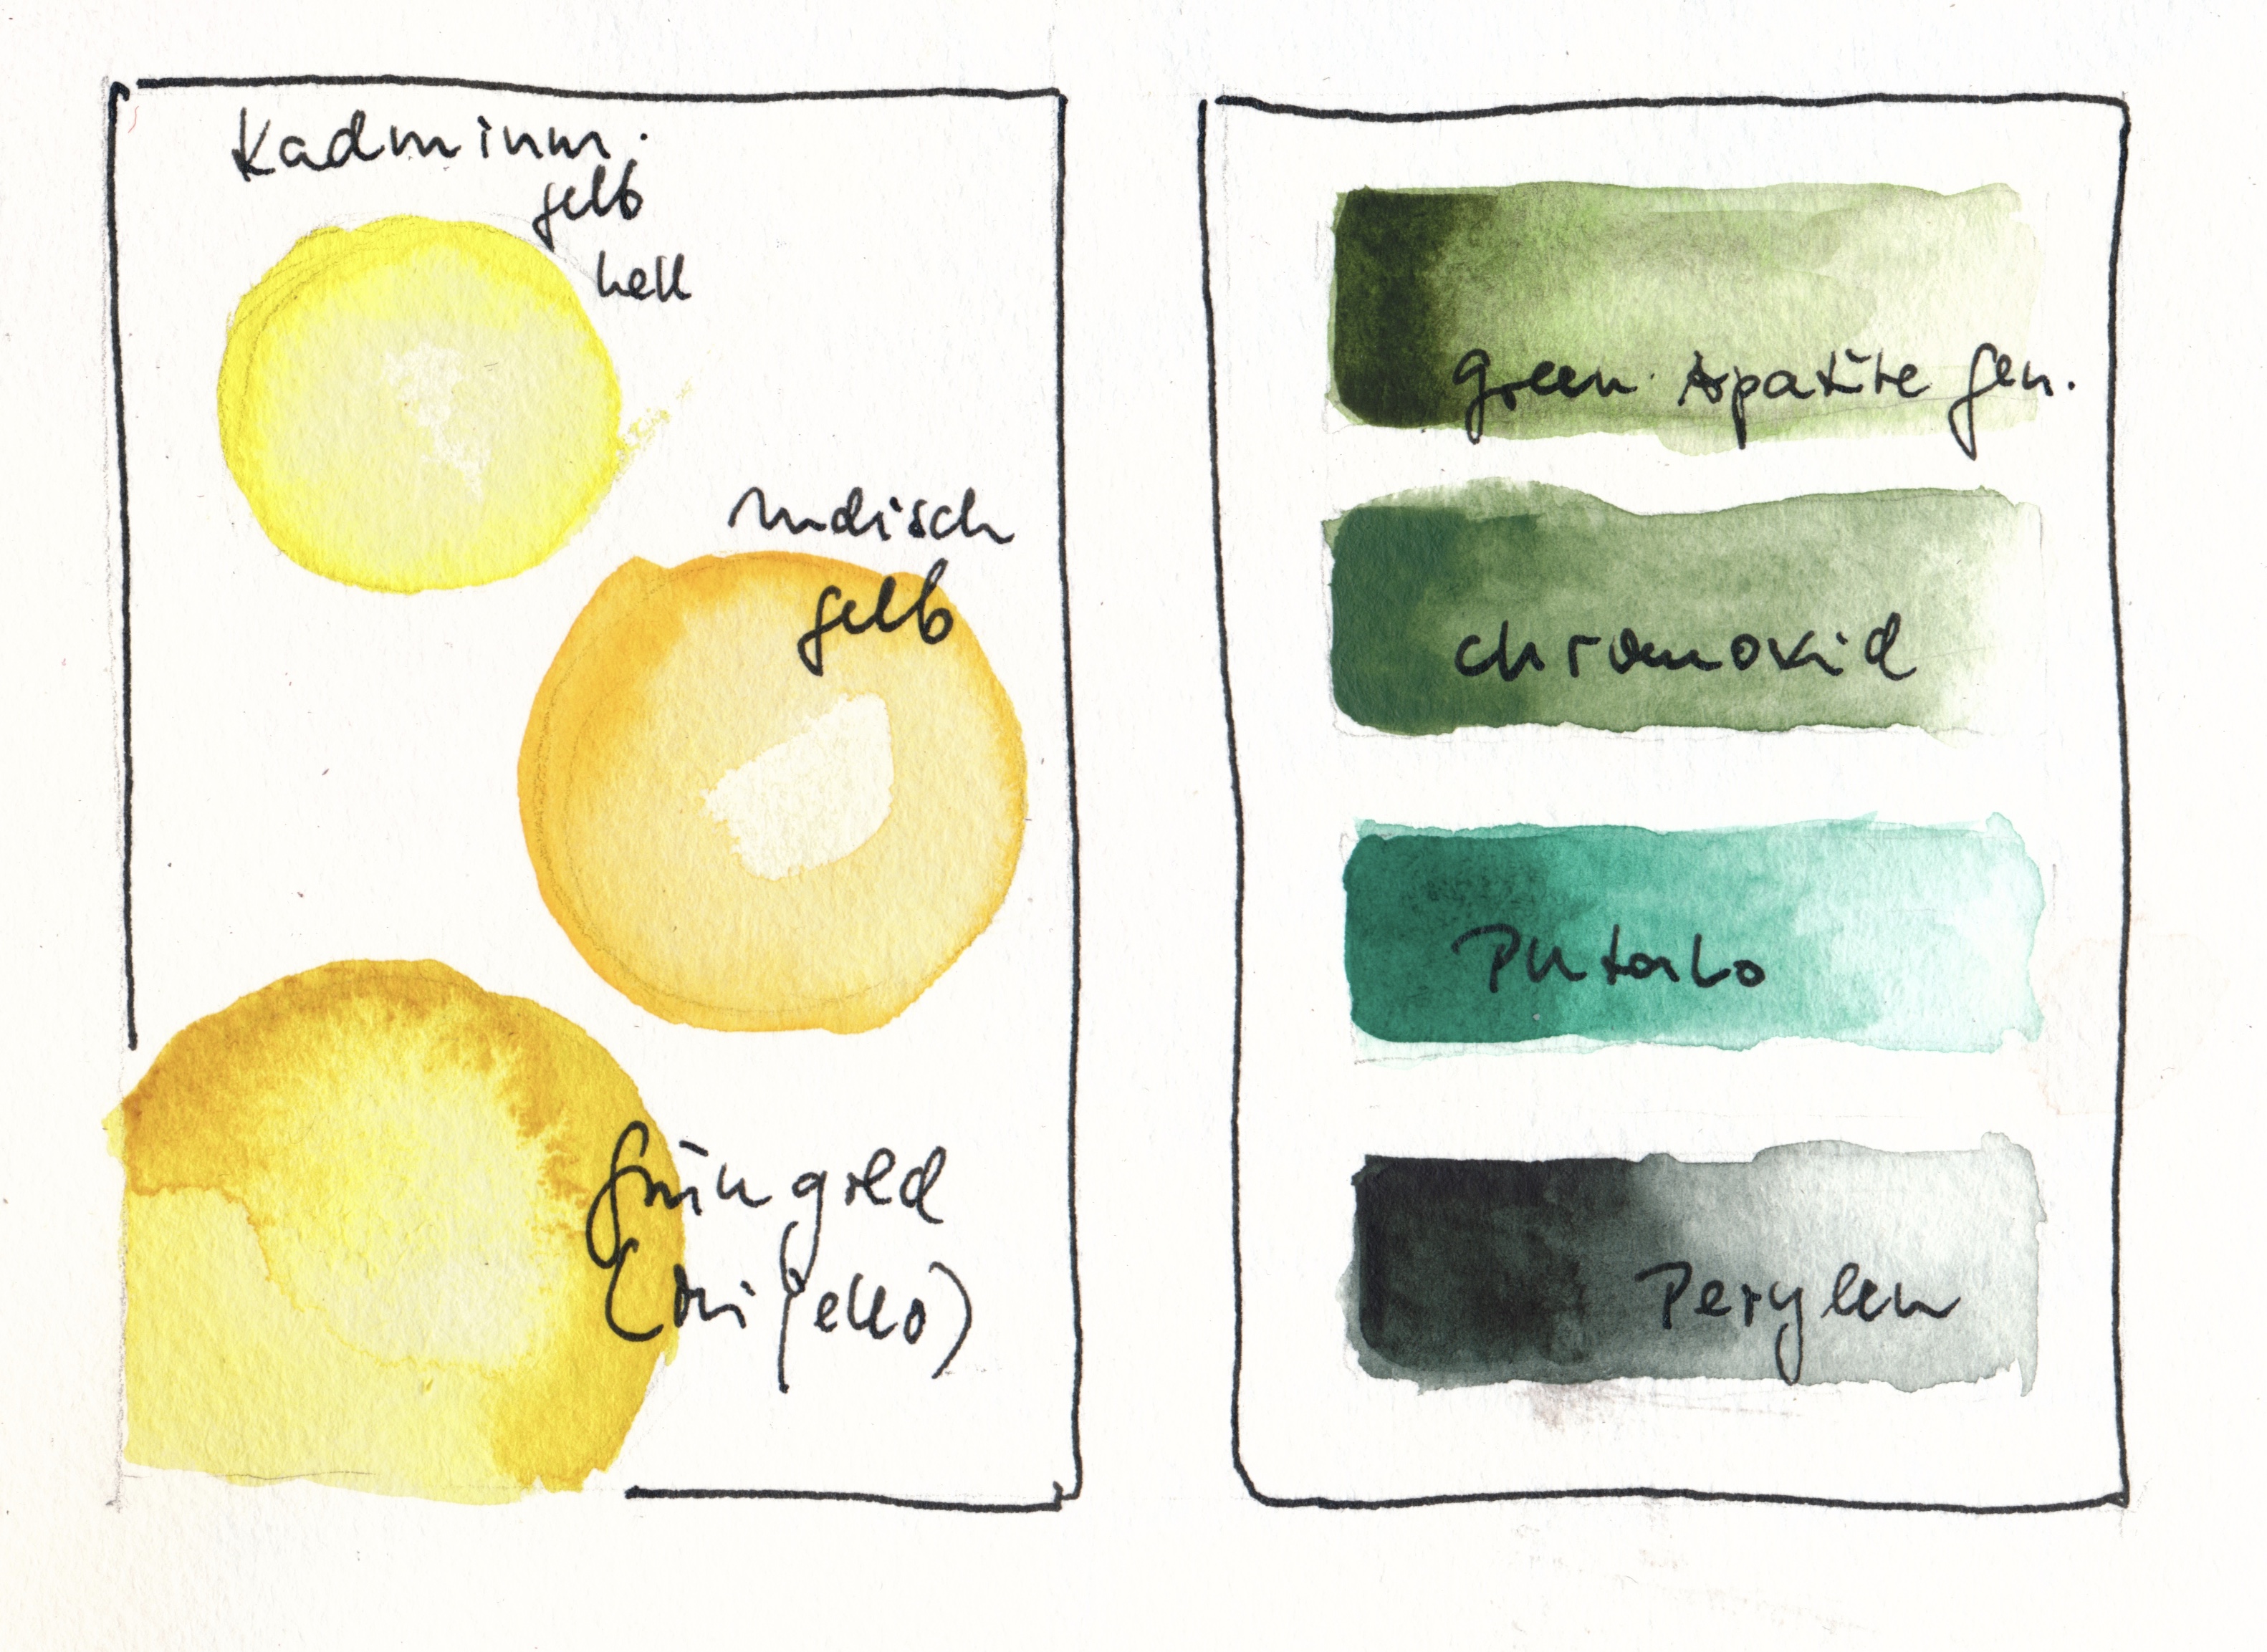 Kadmium.
gelb
hell
Indisch
gelb
Grüngold
green Apatite Gen.
chromoxid
Phtalo
Perylen